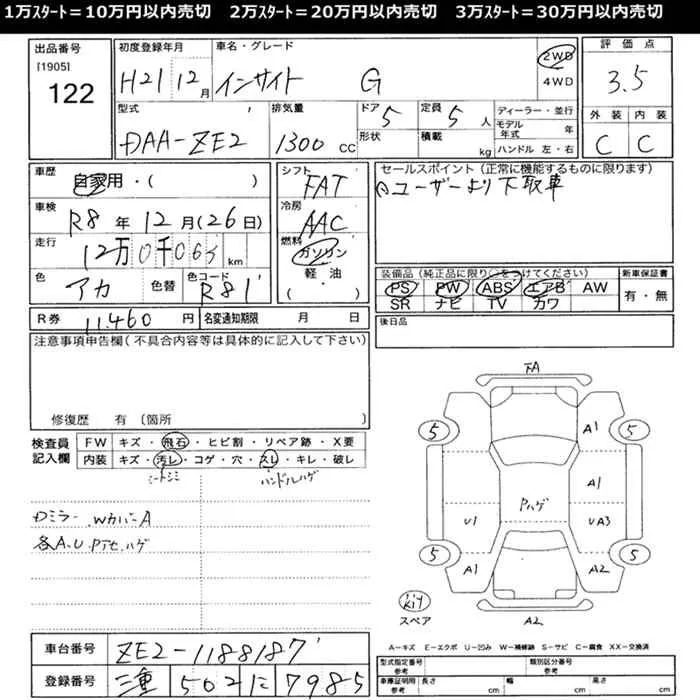 1万スタート=10万円以内売切 2万スタート=20万円以内売切 3万スタート=30万円以内売切
出品番号 [1905] 122
初度登録年月 H21 12月
車名・グレード インサイト G
2WD 4WD
評価点 3.5
型式 DAA-ZE2
排気量 1300 CC
ドア 5 形状
定員 5人 積載 kg
ディーラー・並行 モデル年式 年 ハンドル 左・右
外装 C 内装 C
車歴 自家用・( )
車検 R8年12月(26日)
走行 12万0千065 km
色 アカ 色替 色コード R81
シフト FAT
冷房 AAC
燃料 ガソリン 軽油 (・)
セールスポイント (正常に機能するものに限ります)
①ユーザーより下取車
装備品 (純正品に限り○をつけてください)
PS PW ABS エアB AW
SR ナビ TV カワ
新車保証書 有・無
R券 11,460 円 名変通知期限 月 日
後日品
注意事項申告欄(不具合内容等は具体的に記入して下さい)
修復歴 有 (箇所
検査員記入欄
FW キズ・飛石・ヒビ割・リペア跡・X要
内装 キズ・汚レ・コゲ・穴・スレ・キレ・破レ
シートシミ ハンドルハゲ
Dミラー Wカバー A
各A.U.PTセ.ハゲ
FA
5 A1 5
A1
Pハゲ
U1 UA3
5 A1 A2 5
A2
キット
スペア
A-キズ E-エクボ U-凹み W-補修跡 S-サビ C-腐食 XX-交換済
車台番号 ZE2-1188187
登録番号 三重 502 に 7985
型式指定番号 参考 類別区分番号
車庫証明用 参考 長さ cm 幅 cm 高さ cm